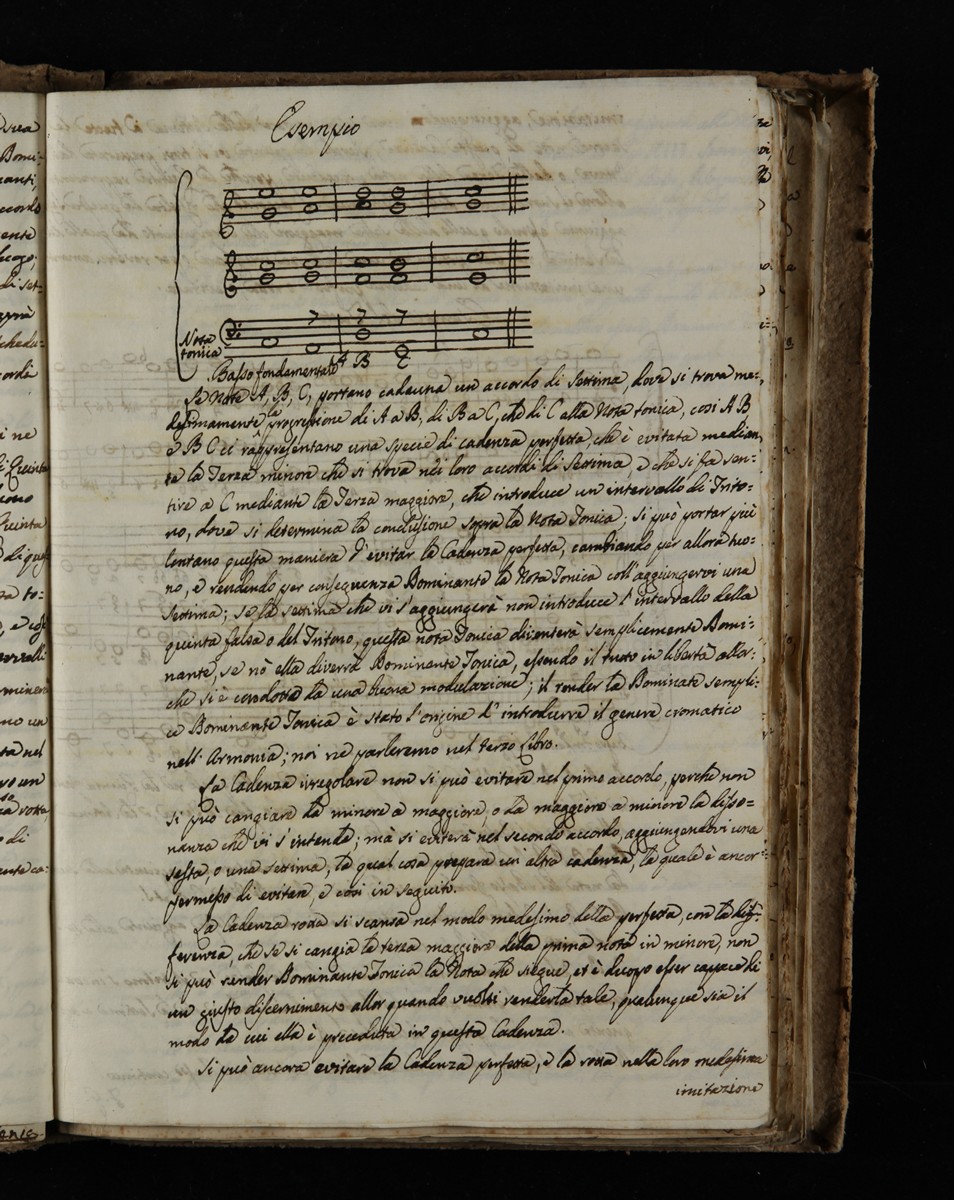 Esempio
7 7 7
Nota
tonica
Basso fondamentale A B C
Le Note A, B, C, portano cadauna un accordo di settima, dove si trova me-
desimamente la progressione di A a B, di B a C, che di C alla Nota tonica, così A B,
e B C ci rappresentano una specie di cadenza perfetta che è evitata median-
te la Terza minore che si trova nei loro accordi di Settima, e che si fa sen-
tire a C mediante la Terza maggiore, che introduce un intervallo di Trito-
no, dove si determina la conclusione sopra la Nota Tonica; si può portar più
lontano questa maniera d'evitar la Cadenza perfetta, cambiando per allora tuo-
no, e rendendo per conseguenza Dominante la Nota Tonica coll'aggiungervi una
settima; se la settima che vi s'aggiungerà non introduce l'intervallo della
quinta falsa o del Tritono, questa nota Tonica diventerà semplicemente Domi-
nante, se nò ella diverrà Dominante Tonica, essendo il tutto in libertà allor-
che si è condotto da una buona modulazione; il render la Dominate sempli-
ce Dominante Tonica è stato l'origine d'introdurre il genere cromatico
nell'Armonia; noi ne parleremo nel terzo Libro.
La Cadenza irregolare non si può evitare nel primo accordo, perche non
si può cangiare da minore a maggiore, o da maggiore a minore la disso-
nanza che vi s'intende; mà si eviterà nel secondo accordo, aggiungendovi una
sesta, o una settima, la qual cosa prepara un altra cadenza, la quale è ancor
permesso di evitare, e così in seguito.
La Cadenza rotta si scansa nel modo medesimo della perfetta, con la dif-
ferenza, che se si cangia la terza maggiore della prima nota in minore, non
si può render Dominante Tonica la Nota che siegue, et è duopo esser capace di
un giusto discernimento allor quando vuolsi renderla tale, qualunque sia il
modo da cui ella è preceduta in questa Cadenza.
Si può ancora evitare la Cadenza perfetta, e la rotta nella loro medesima
imitazione